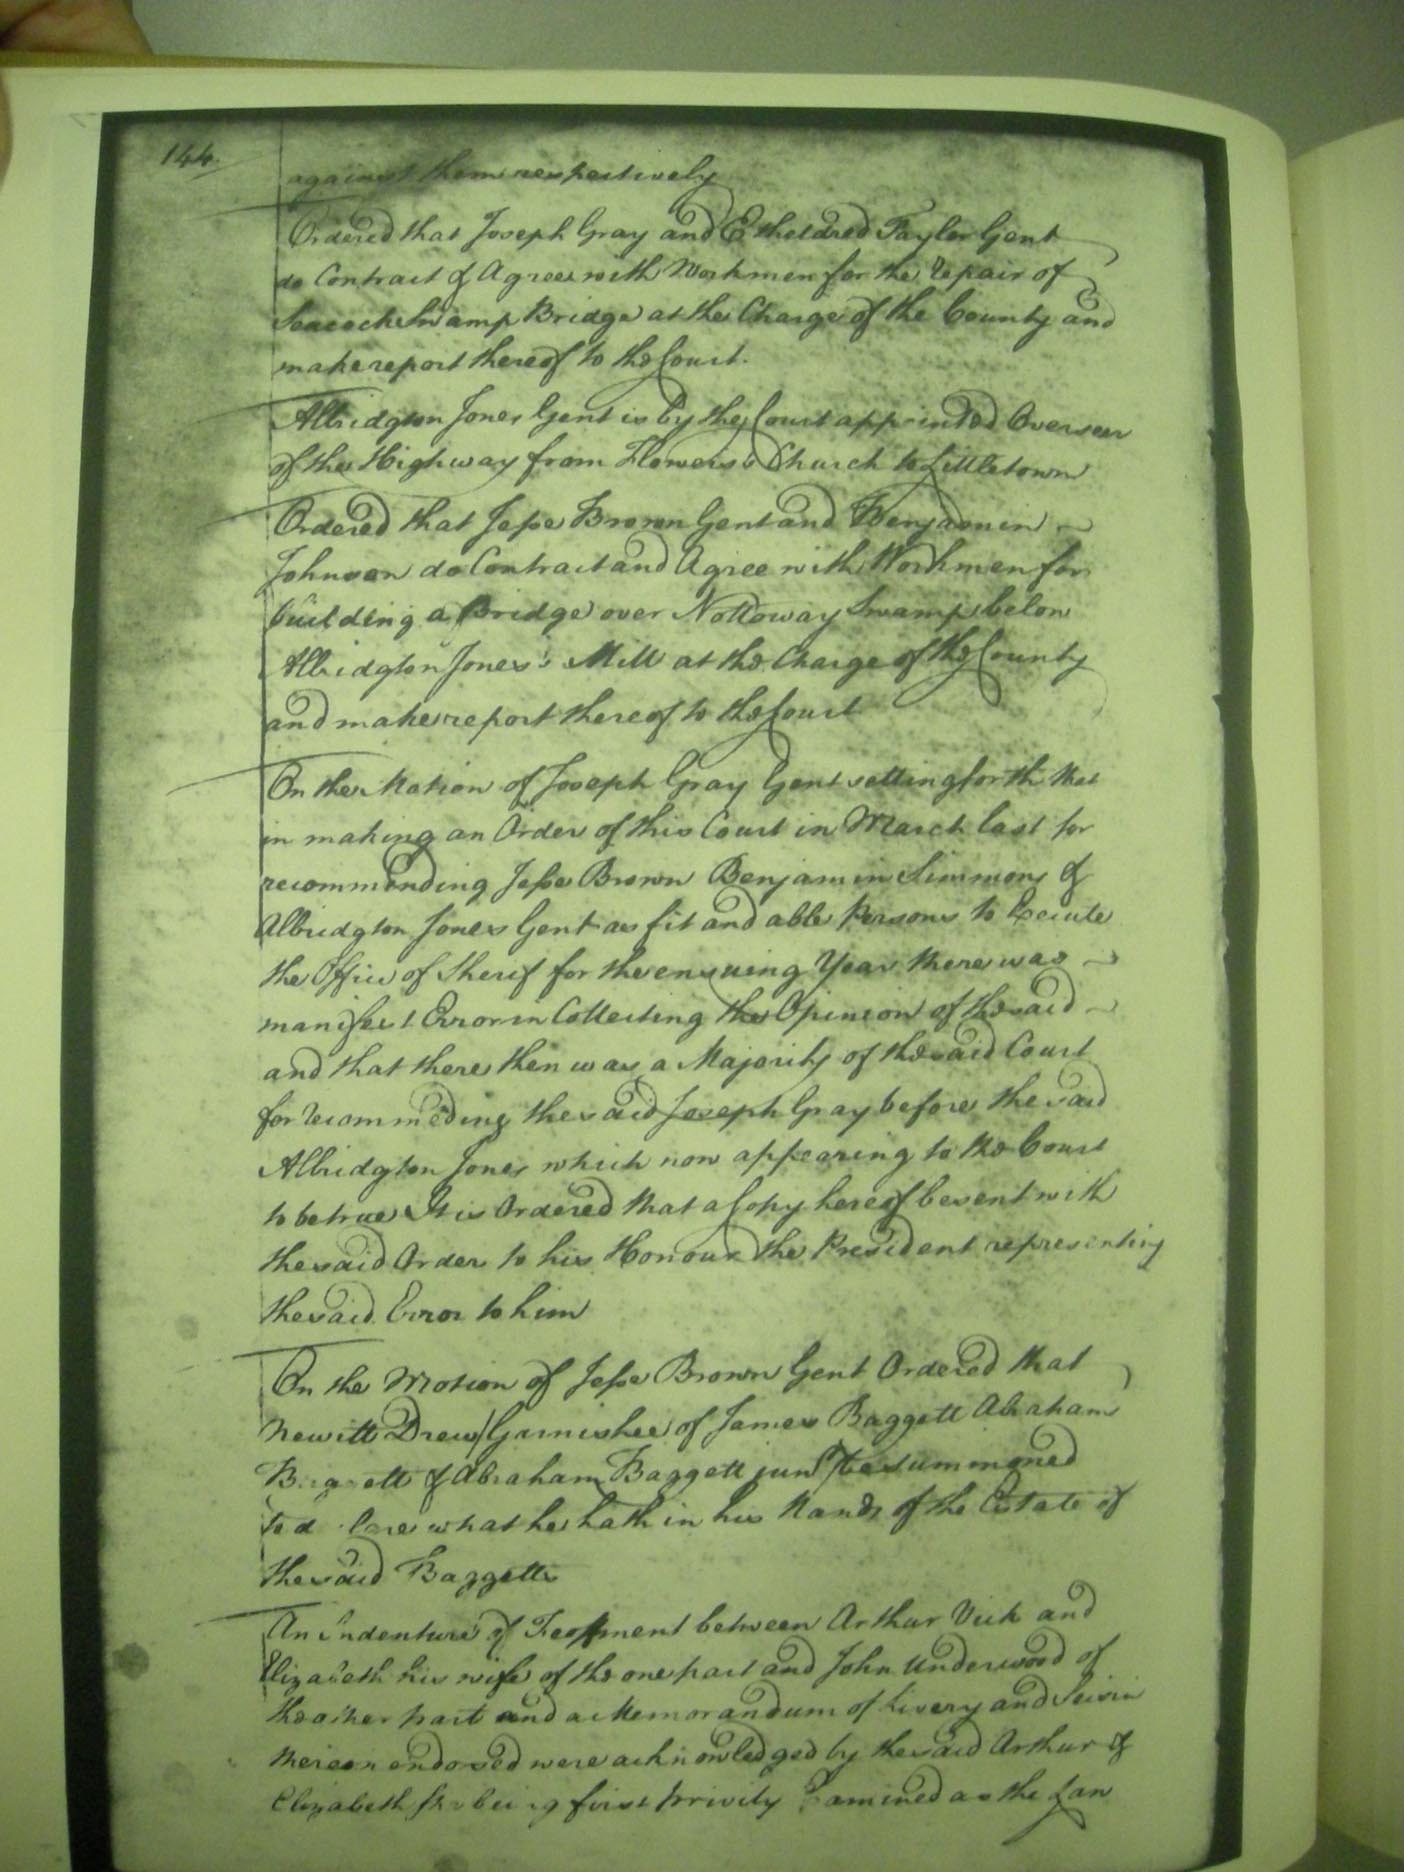 144.
against them respectively
Ordered that Joseph Gray and Etheldred Taylor Gent
do Contract & Agree with Workmen for the Repair of
Seacock Swamp Bridge at the Charge of the County and
make report thereof to the Court.
Albridgton Jones Gent is by the Court appointed Overseer
of the Highway from Flowers's Church to Littletown
Ordered that Jesse Brown Gent and Benjamin
Johnson do Contract and Agree with Workmen for
building a Bridge over Nottoway Swamp below
Albridgton Jones's Mill at the Charge of the County
and make report thereof to the Court
On the Motion of Joseph Gray Gent setting forth that
in making an Order of this Court in March last for
recommending Jesse Brown Benjamin Simmons &
Albridgton Jones Gent as fit and able Persons to Execute
the Office of Sherif for the ensuing Year there was
manifest Error in Collecting the Opinion of the said
and that there then was a Majority of the said Court
for recommeding the said Joseph Gray before the said
Albridgton Jones which now appearing to the Court
to be true It is Ordered that a Copy hereof be sent with
the said Order to his Honour the President representing
the said Error to him
On the Motion of Jesse Brown Gent Ordered that
Newitt Drew Garnishee of James Baggett Abraham
Baggett & Abraham Baggett junr be summoned
to declare what he hath in his Hands of the Estate of
the said Baggetts
An Indenture of Feoffment between Arthur Vick and
Elizabeth his wife of the one part and John Underwood of
the other part and a Memorandum of Livery and Seisin
thereon endorsed were acknowledged by the said Arthur &
Elizabeth she being first privily Examined as the Law